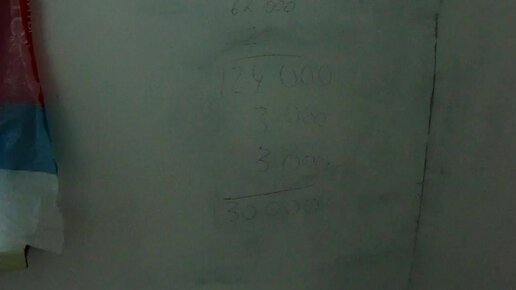 62 000
2
124 000
3 000
3 000
130 000